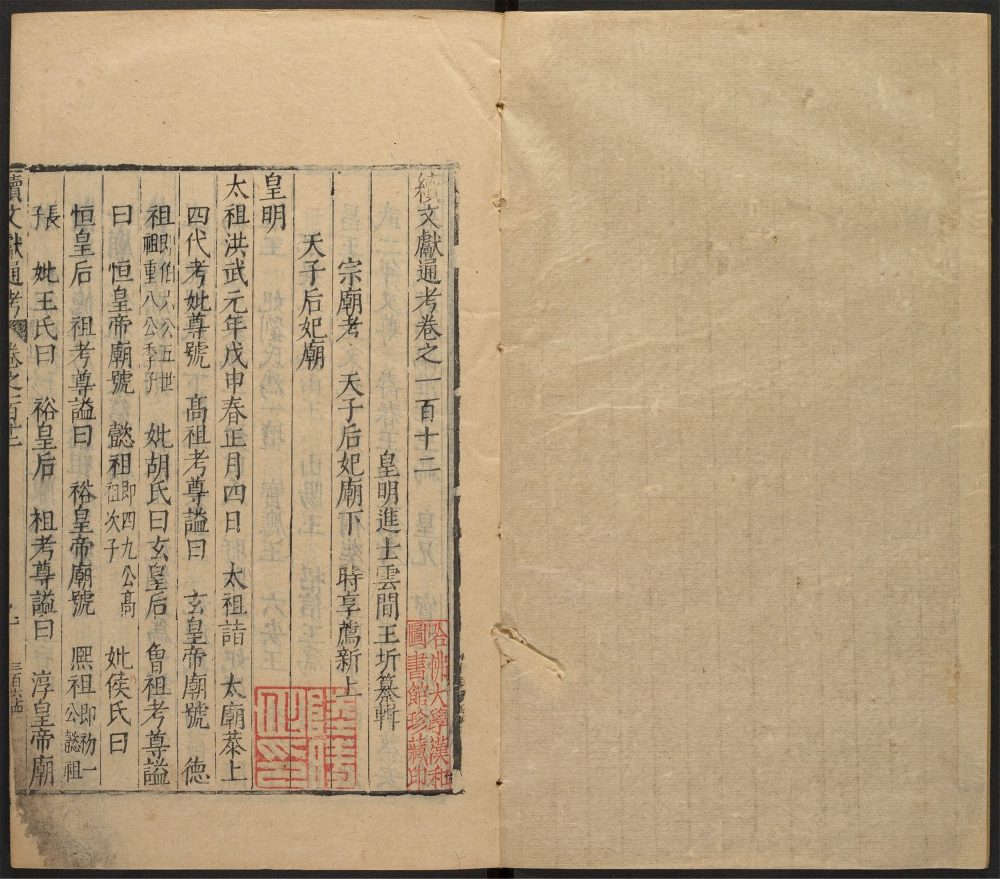 續文獻通考卷之一百十二
皇明進士雲間王圻纂輯
宗廟考 天子后妃廟下 時享薦新上
天子后妃廟
皇明
太祖洪武元年戊申春正月四日 太祖詣 太廟恭上
四代考妣尊號 高祖考尊謚曰 玄皇帝廟號 德
祖即伯六公五世祖重八公季子 妣胡氏曰玄皇后 曾祖考尊謚
曰 恒皇帝廟號 懿祖即四九公高祖次子 妣侯氏曰
恒皇后 祖考尊謚曰 裕皇帝廟號 熈祖即初一公懿祖
長 妣王氏曰 裕皇后 祖考尊謚曰 淳皇帝廟
續文獻通考 卷之一百十二 一
哈佛大學漢和圖書館珍藏印